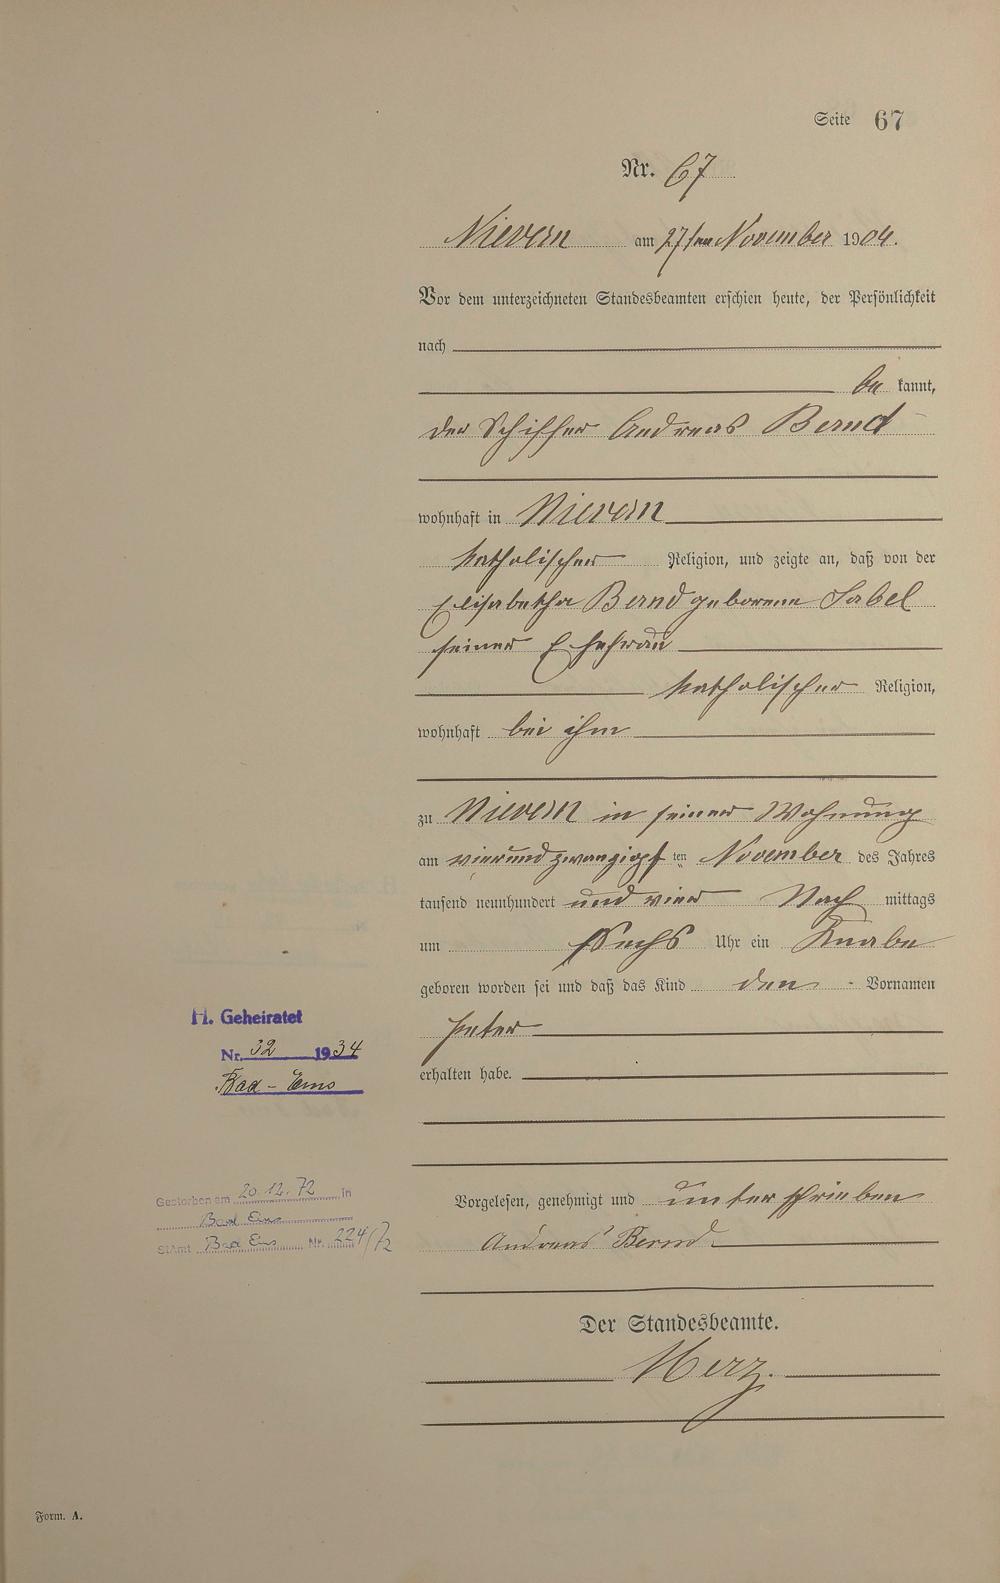 Seite 67
Nr. 67
Nievern am 27ten November 1904.
Vor dem unterzeichneten Standesbeamten erschien heute, der Persönlichkeit
nach
be kannt,
der Schiffer Andreas Bernd
wohnhaft in Nievern
katholischer Religion, und zeigte an, daß von der
Elisabetha Bernd geborene Sabel
seiner Ehefrau
katholischer Religion,
wohnhaft bei ihm
zu Nievern in seiner Wohnung
am vierundzwanzigst ten November des Jahres
tausend neunhundert und vier Nach mittags
um Sechs Uhr ein Knabe
geboren worden sei und daß das Kind den Vornamen
Peter
erhalten habe.
H. Geheiratet
Nr. 32 1934
Bad-Ems
Vorgelesen, genehmigt und unterschrieben
Andreas Bernd
Gestorben am 20.12.72 in
Bad Ems
StAmt Bad Ems Nr. 224/72
Der Standesbeamte.
Merz.
Form. A.